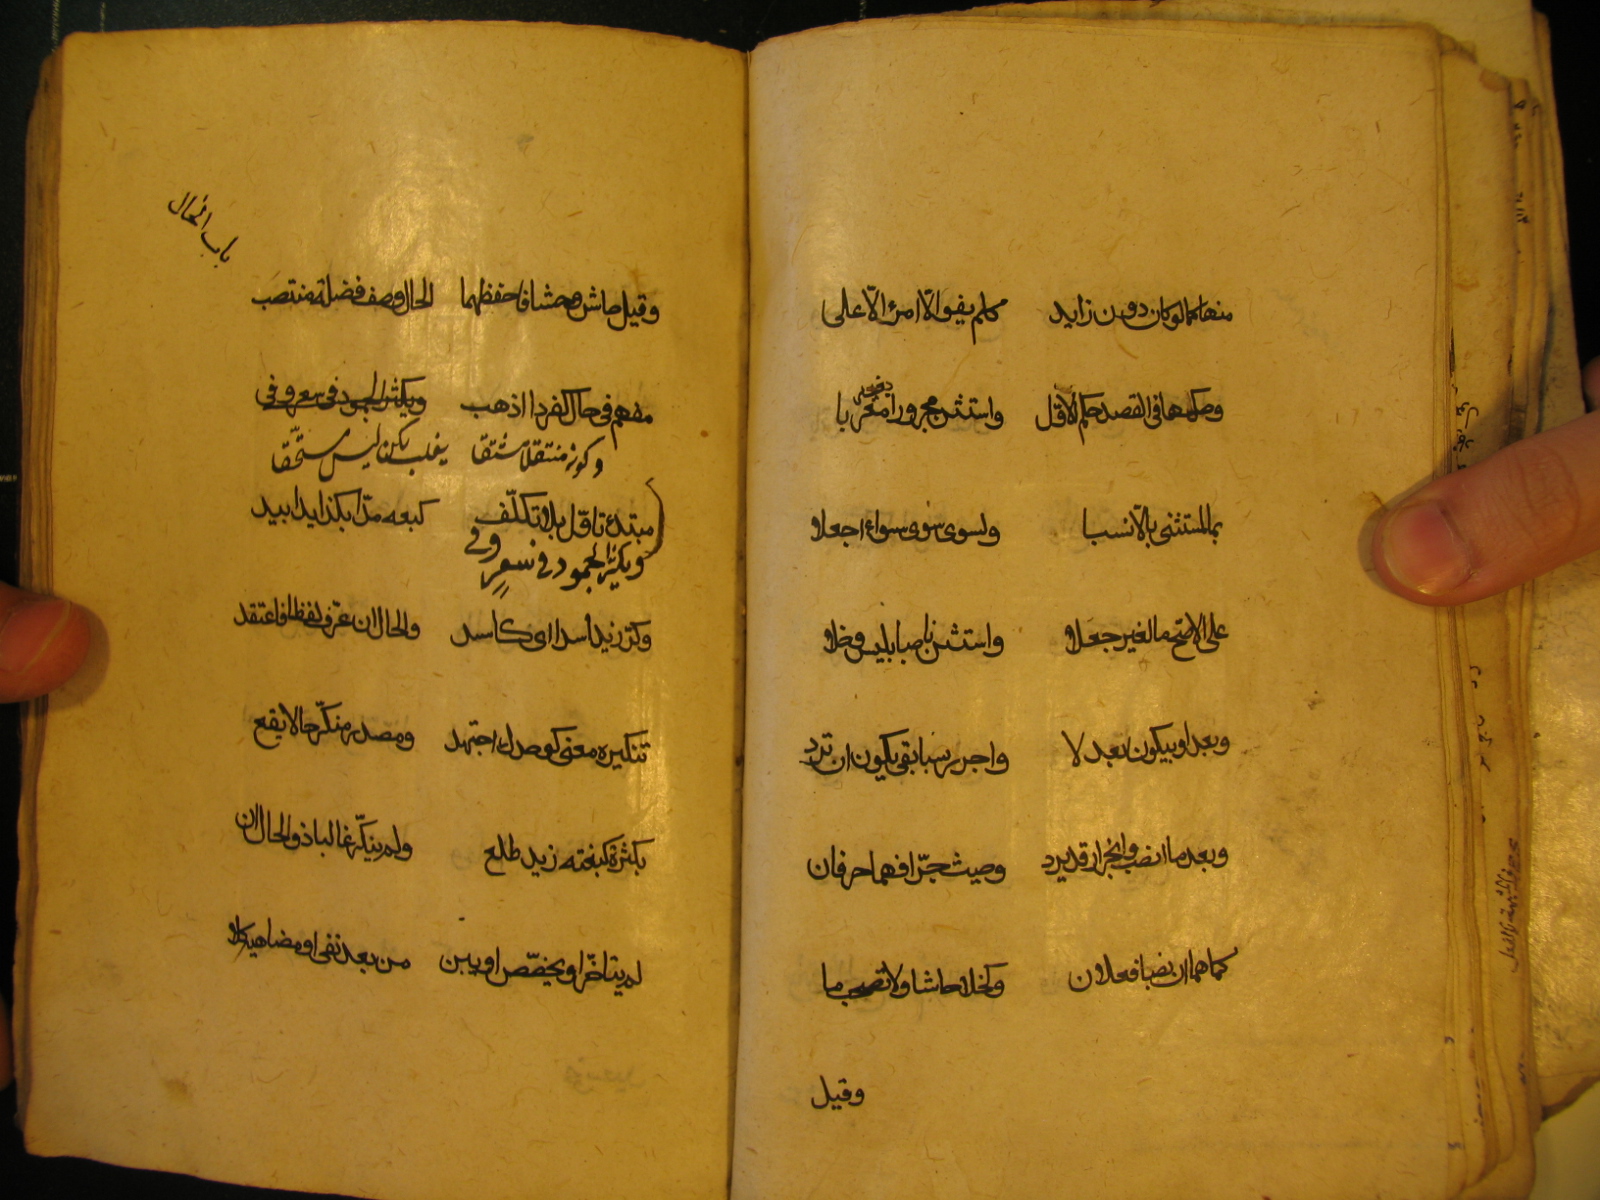 منها كما لو كان دون زايد كلم يفوا الّا امرؤ الّا على
وحكمها فى القصد حكم الاوّل واستثن مجرورا بغير معربا
بما لمستثنى بالّا نسبا ولسوى سوى سواء اجعلا
على الاصحّ ما لغير جعلا واستثن ناصبا بليس وخلا
وبعدا وبيكون بعد لا واجرر بسابقى يكون ان ترد
وبعد ما انصب وانجرار قد يرد وحيث جرّا فهما حرفان
كما هما ان نصبا فعلان وكخلا حاشا ولا تصحب ما
وقيل
باب الحال
وقيل حاش وحشا فاحفظهما الحال وصف فضلة منتصب
مفهم فى حال كفردا اذهب ويكثر الجمود فى سعر وفى
وكونه منتقلا مشتقا يغلب لكن ليس مستحقّا
مبتدى تاوّل بلا تكلّف كبعه مدّا بكذا يدا بيد
ويكثر الجمود فى سعر وفى
وكرّ زيد اسدا اى كاسد والحال ان عرّف لفظا فاعتقد
تنكيره معنى كوحدك اجتهد ومصدر منكّر حالا يقع
بكثرة كبغتة زيد طلع ولم ينكّر غالبا ذو الحال ان
لم يتاخّر او يخصّص او يبن من بعد نفى او مضاهيه كلا